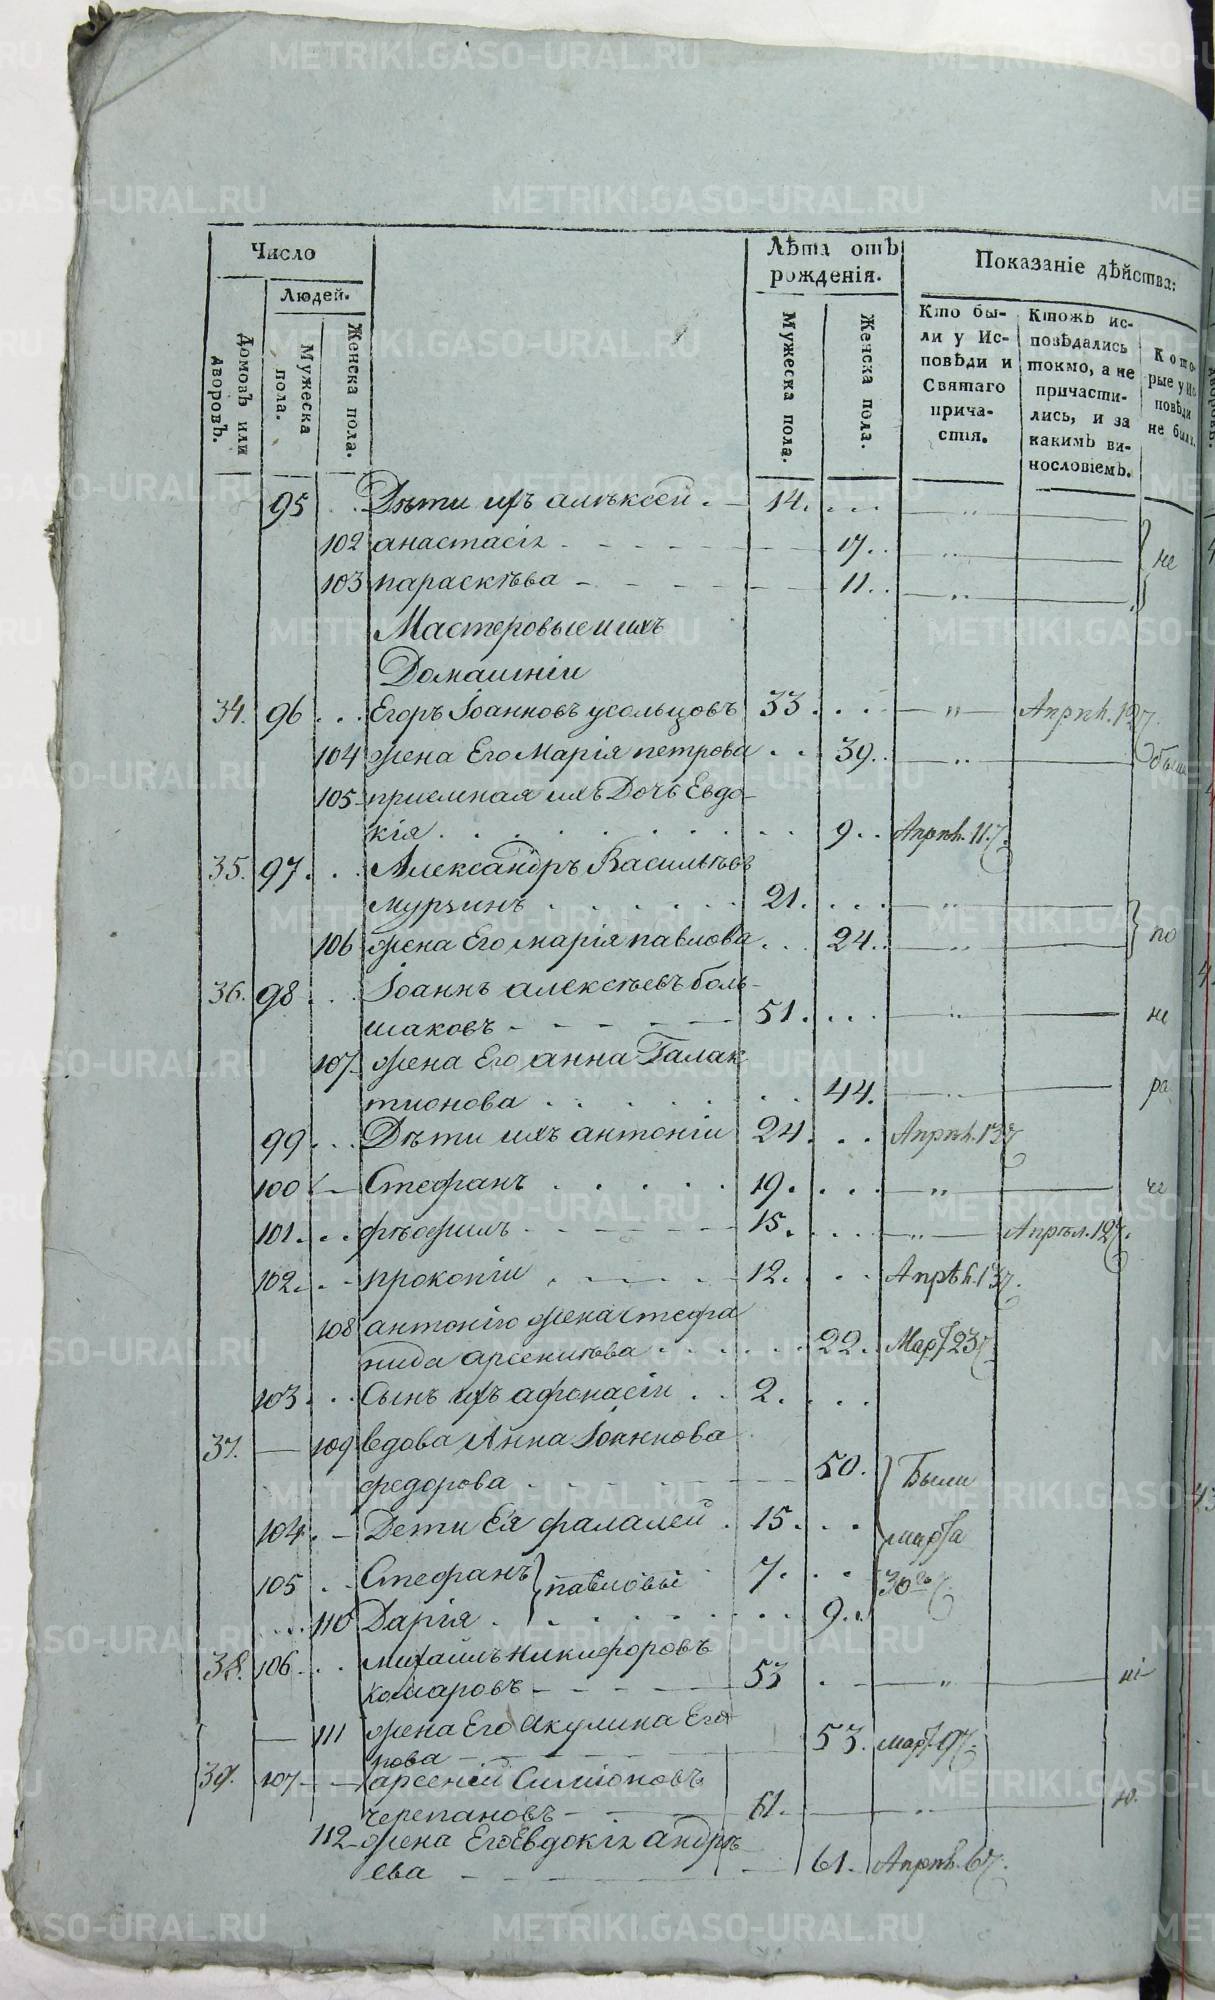 Число
Людей.
Домовъ или дворовъ.
Мужеска пола.
Женска пола.
Лѣта отъ рожденія.
Мужеска пола.
Женска пола.
Показаніе дѣйства:
Кто бы-
ли у Ис-
повѣди и
Святаго
прича-
стія.
Ктожъ ис-
повѣдались
токмо, а не
причасти-
лись, и за
какимъ ви-
нословіемъ.
Кото-
рые у Ис
повѣди
не были.
95 . . Дѣти ихъ алѣксѣй . — 14. . . . — „ —
102 анастасія — — — 17. . — „ —
103 параскѣва — — — 11. . — „ — не
Мастеровые и ихъ
Домашніи
34. 96 . . . Егоръ Іоанновъ усольцовъ 33 . . . . — „ — Апрѣл. 12
104 жена Его Марія петрова . . . 39. . — „ — были
105 приемная ихъ Дочь Евдо-
кія . . . . . . . 9 . . Апрѣл. 11.
35. 97. . . Александръ Васильевъ
мурзинъ . . . . . . 21. . . . — „ —
106 жена Его марія павлова . . . 24. . — „ — по
36. 98 . . . Іоаннъ алексѣевъ боль-
шаковъ — — — 51. . . . — „ — не
107. жена Его анна Галак
тионова . . . . . . 44. — „ — ра
99 . . . Дѣти ихъ антоніи 24 . . . Апрѣл. 13
100 . — Стефанъ . . . . . 19. . . . — „ — че
101. . . . фѣофилъ — — — 15. . . . — „ — Апрѣл. 12.
102. . - прокопіи . — — — 12. . . . Апрѣл. 13.
108 антоніго жена стефа
нида арсениѣва . . . . . . 22. Март 23
103 . . . Сынъ ихъ афонасіи . . 2. . . .
37. — 109 вдова Анна Іоаннова
федорова — — — 50. Были
104. . — Дети Ея фалалей . 15. . . . марта
105 . . Стефанъ павловы 7. . . . 30го
. . . . 110 Дарія . . . . . . . 9. .
38. 106. . . Михаилъ Никифоровъ
комаровъ — — — 53 . — — „ — ні
— 111 жена Его Акулина Его
рова — — — 53. март 9.
39. 107 — — арсеніи Симионовъ
черепановъ — — — 61. — „ — ю.
112 жена Его Евдокія андрѣ
ева — — — 61. Апрѣл. 6.
METRIKI.GASO-URAL.RU